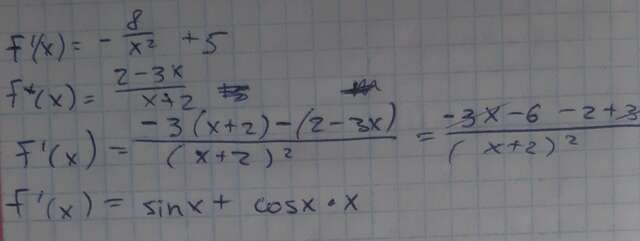 f'(x) = - 8/x² + 5
f'(x) = (2-3x)/(x+2)
f'(x) = (-3(x+2)-(2-3x))/(x+2)² = (-3x-6-2+3)/(x+2)²
f'(x) = sinx + cosx · x